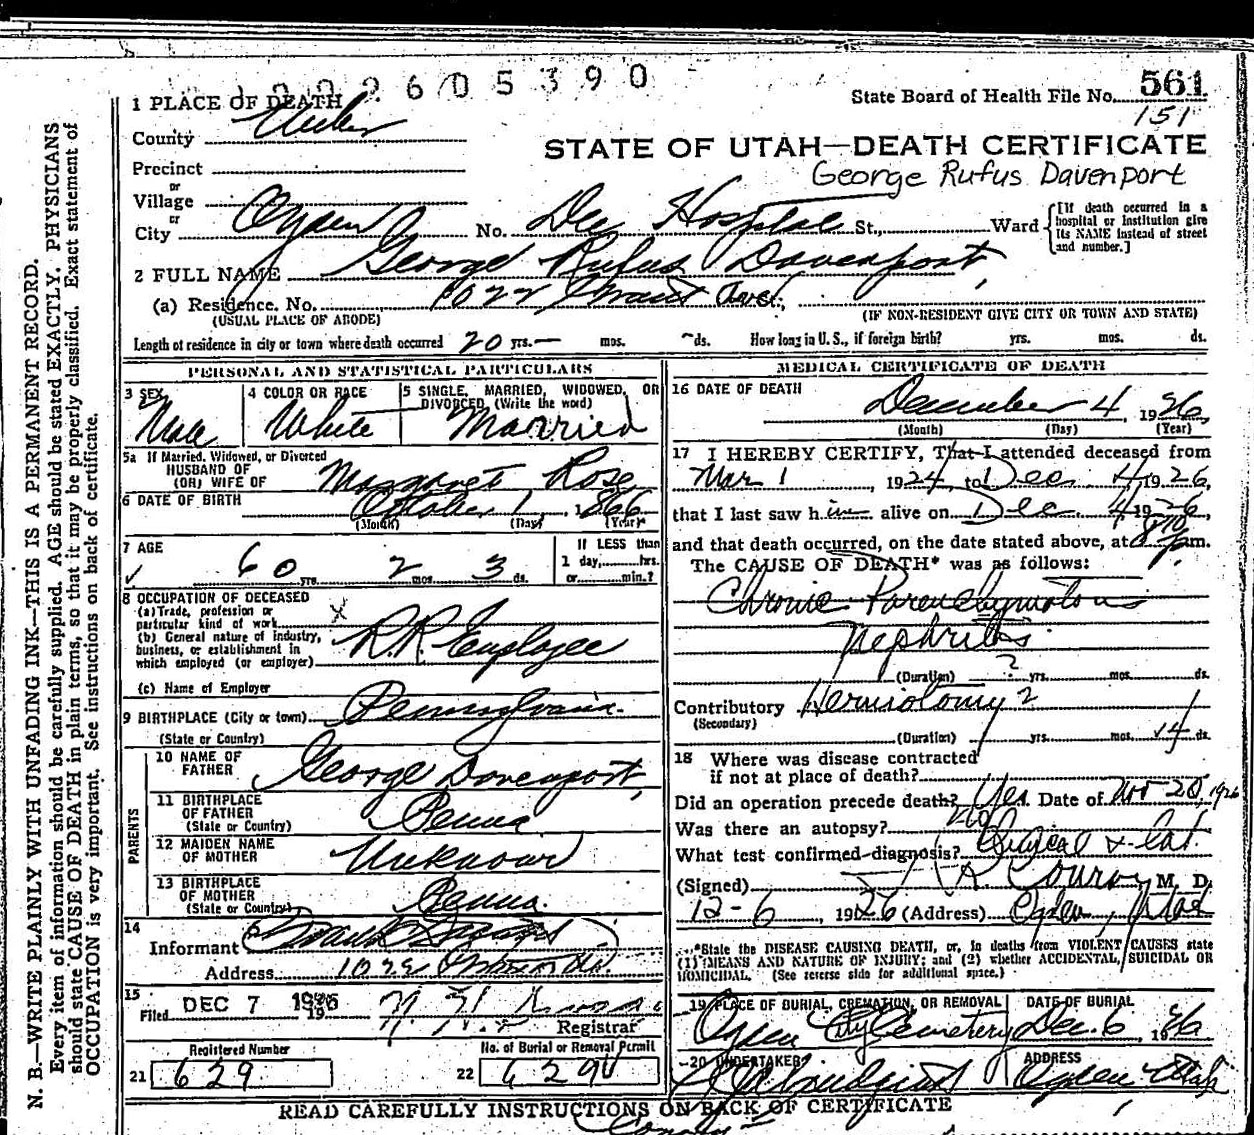 2605390
State Board of Health File No. 561
151
1 PLACE OF DEATH
County Weber
STATE OF UTAH—DEATH CERTIFICATE
Precinct
George Rufus Davenport
or
Village
or
City Ogden No. Dee Hospital St., Ward
[If death occurred in a hospital or institution give its NAME instead of street and number.]
2 FULL NAME George Rufus Davenport,
(a) Residence. No. Grant Ave.,
(USUAL PLACE OF ABODE) (IF NON-RESIDENT GIVE CITY OR TOWN AND STATE)
Length of residence in city or town where death occurred 20 yrs. — mos. ~ ds. How long in U. S., if foreign birth? yrs. mos. ds.
PERSONAL AND STATISTICAL PARTICULARS
3 SEX Male
4 COLOR OR RACE White
5 SINGLE, MARRIED, WIDOWED, OR DIVORCED (Write the word) Married
5a If Married, Widowed, or Divorced
HUSBAND OF
(OR) WIFE OF Margaret Rose
6 DATE OF BIRTH October 1, 1866
(Month) (Day) (Year)
7 AGE
60 yrs. 2 mos. 3 ds.
If LESS than
1 day, hrs.
or min.?
8 OCCUPATION OF DECEASED
(a) Trade, profession or
particular kind of work
(b) General nature of industry,
business, or establishment in
which employed (or employer) R.R. Employee
(c) Name of Employer
9 BIRTHPLACE (City or town) Pennsylvania.
(State or Country)
PARENTS
10 NAME OF
FATHER George Davenport,
11 BIRTHPLACE
OF FATHER
(State or Country) Penna
12 MAIDEN NAME
OF MOTHER Unknown
13 BIRTHPLACE
OF MOTHER
(State or Country) Penna.
14
Informant
Address
15
Filed DEC 7 1926
Registrar
Registered Number
21 629
No. of Burial or Removal Permit
22
MEDICAL CERTIFICATE OF DEATH
16 DATE OF DEATH
December 4, 1926
(Month) (Day) (Year)
17 I HEREBY CERTIFY, That I attended deceased from
Mar 1, 1924, to Dec 4, 1926,
that I last saw him alive on Dec 4, 1926,
and that death occurred, on the date stated above, at pm.
The CAUSE OF DEATH* was as follows:
Chronic Parenchymatous
Nephritis
(Duration) ? yrs. mos. ds.
Contributory Herniotomy
(Secondary)
(Duration) yrs. mos. 14 ds.
18 Where was disease contracted
if not at place of death?
Did an operation precede death? Yes. Date of Nov 20, 1926
Was there an autopsy? No
What test confirmed diagnosis?
(Signed) Conroy M. D.
12-6, 1926 (Address) Ogden, Utah
*State the DISEASE CAUSING DEATH, or, in deaths from VIOLENT CAUSES state
(1) MEANS AND NATURE OF INJURY; and (2) whether ACCIDENTAL, SUICIDAL OR
HOMICIDAL. (See reverse side for additional space.)
19 PLACE OF BURIAL, CREMATION, OR REMOVAL DATE OF BURIAL
Ogden City Cemetery Dec. 6, 1926
20 UNDERTAKER ADDRESS
Ogden Utah
READ CAREFULLY INSTRUCTIONS ON BACK OF CERTIFICATE
N. B.—WRITE PLAINLY WITH UNFADING INK—THIS IS A PERMANENT RECORD.
Every item of information should be carefully supplied. AGE should be stated EXACTLY. PHYSICIANS
should state CAUSE OF DEATH in plain terms, so that it may be properly classified. Exact statement of
OCCUPATION is very important. See instructions on back of certificate.